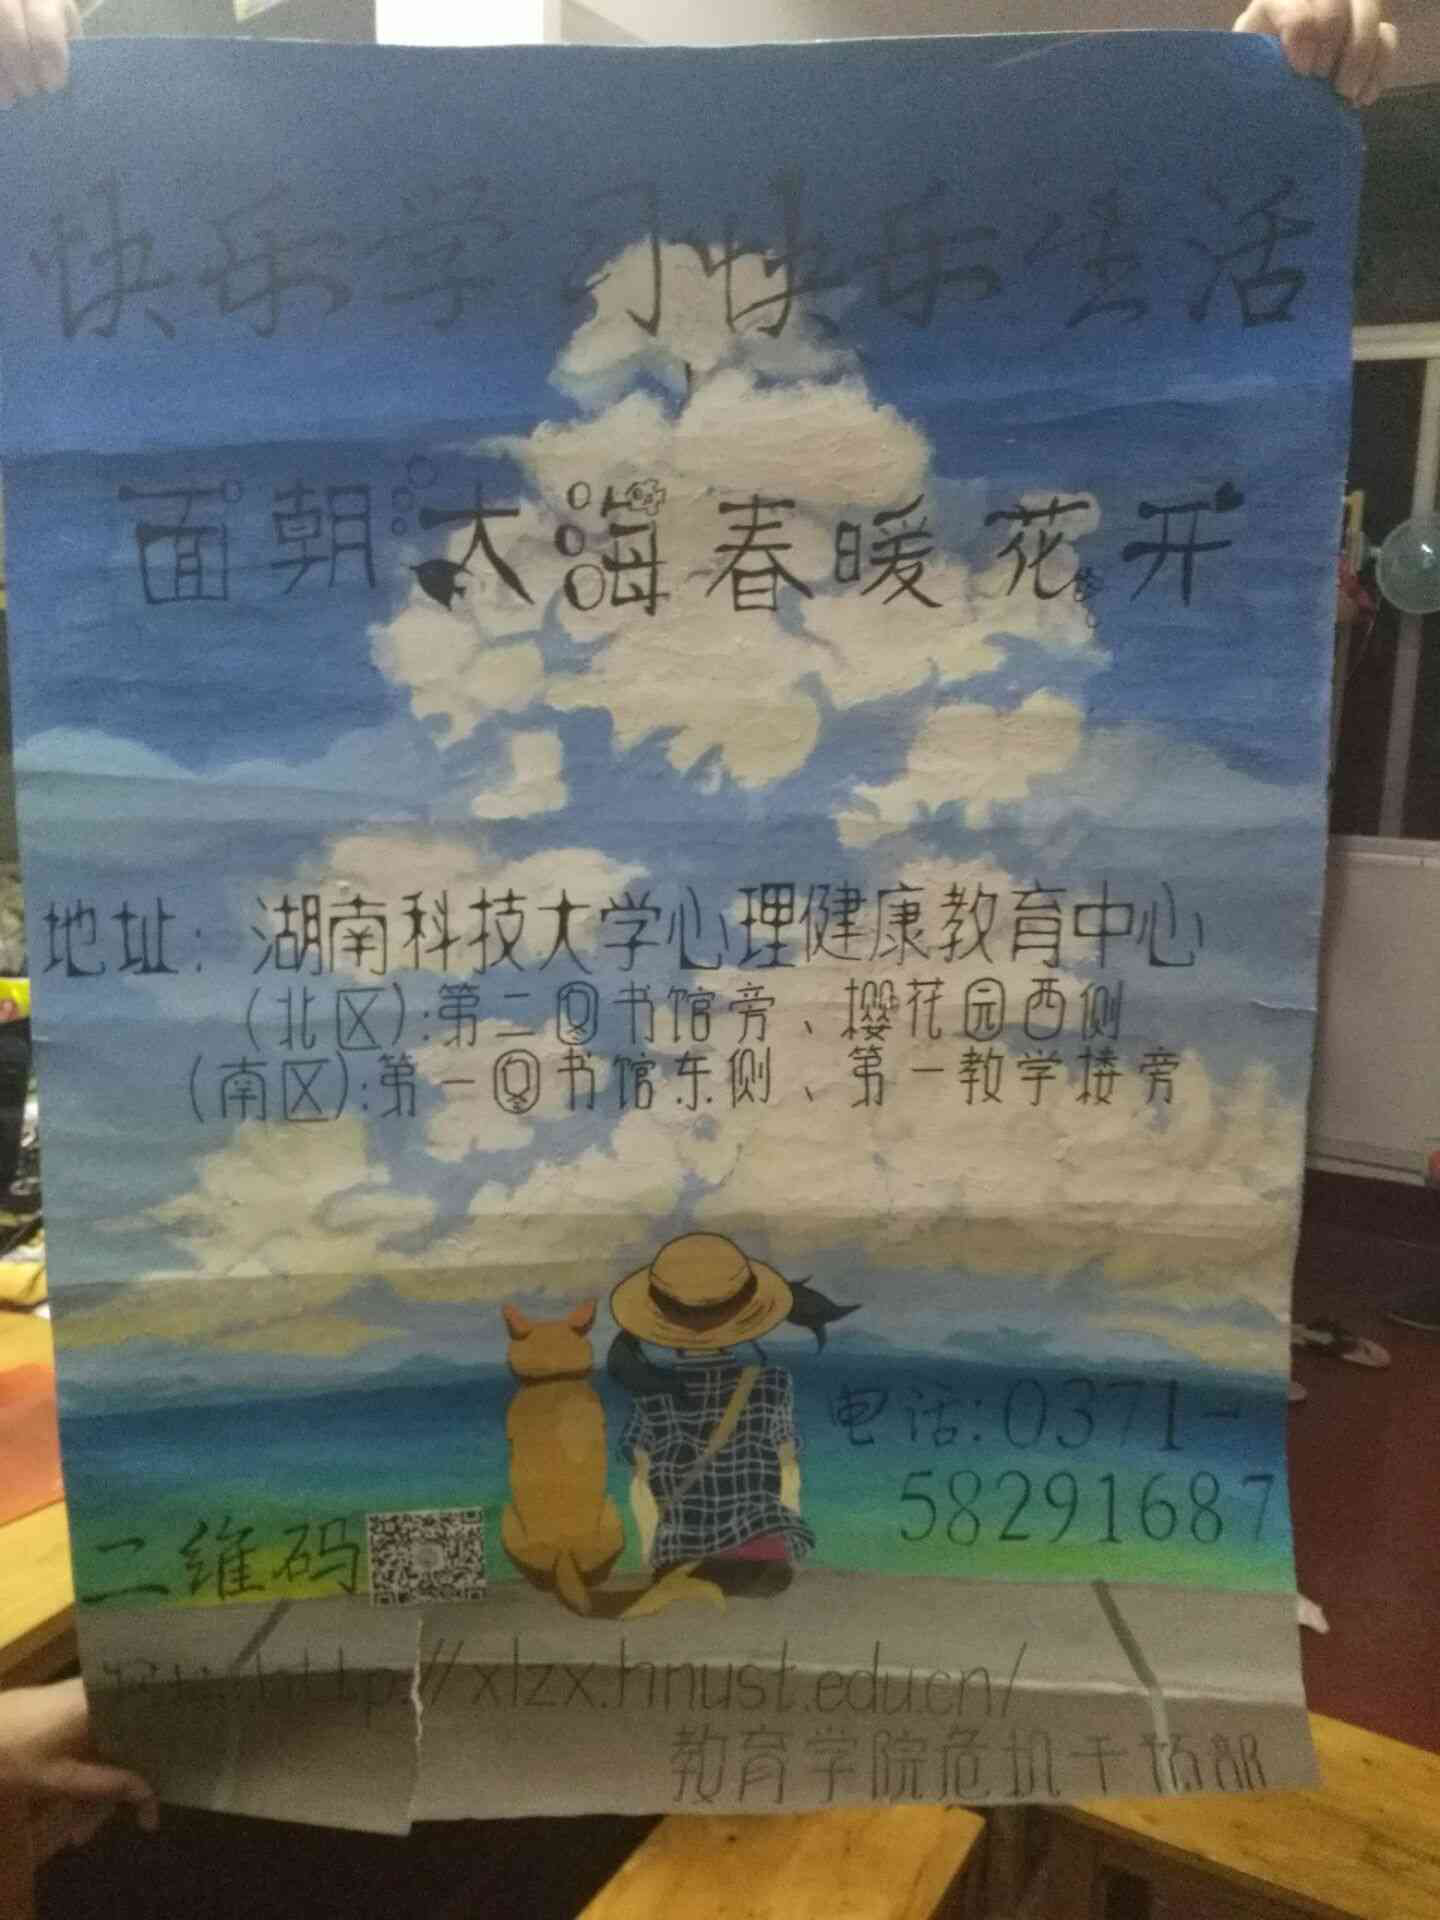 快乐学习快乐生活
面朝大海春暖花开
地址：湖南科技大学心理健康教育中心
(北区):第二图书馆旁、樱花园西侧
(南区):第一图书馆东侧、第一教学楼旁
电话:0371-
58291687
二维码
http://xlzx.hnust.edu.cn/
教育学院危机干预部